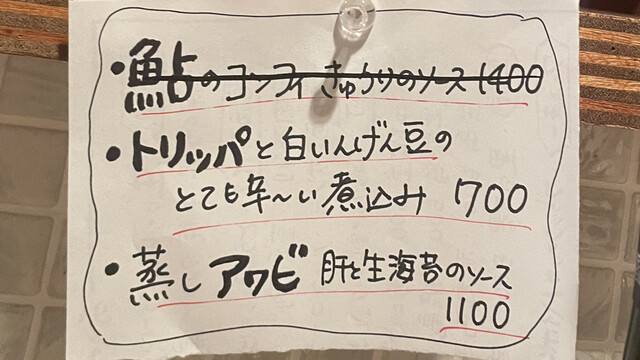 ・鮎のコンフィ きゅうりのソース 1400
・トリッパと白いんげん豆の
とても辛〜い煮込み 700
・蒸しアワビ 肝と生海苔のソース
1100